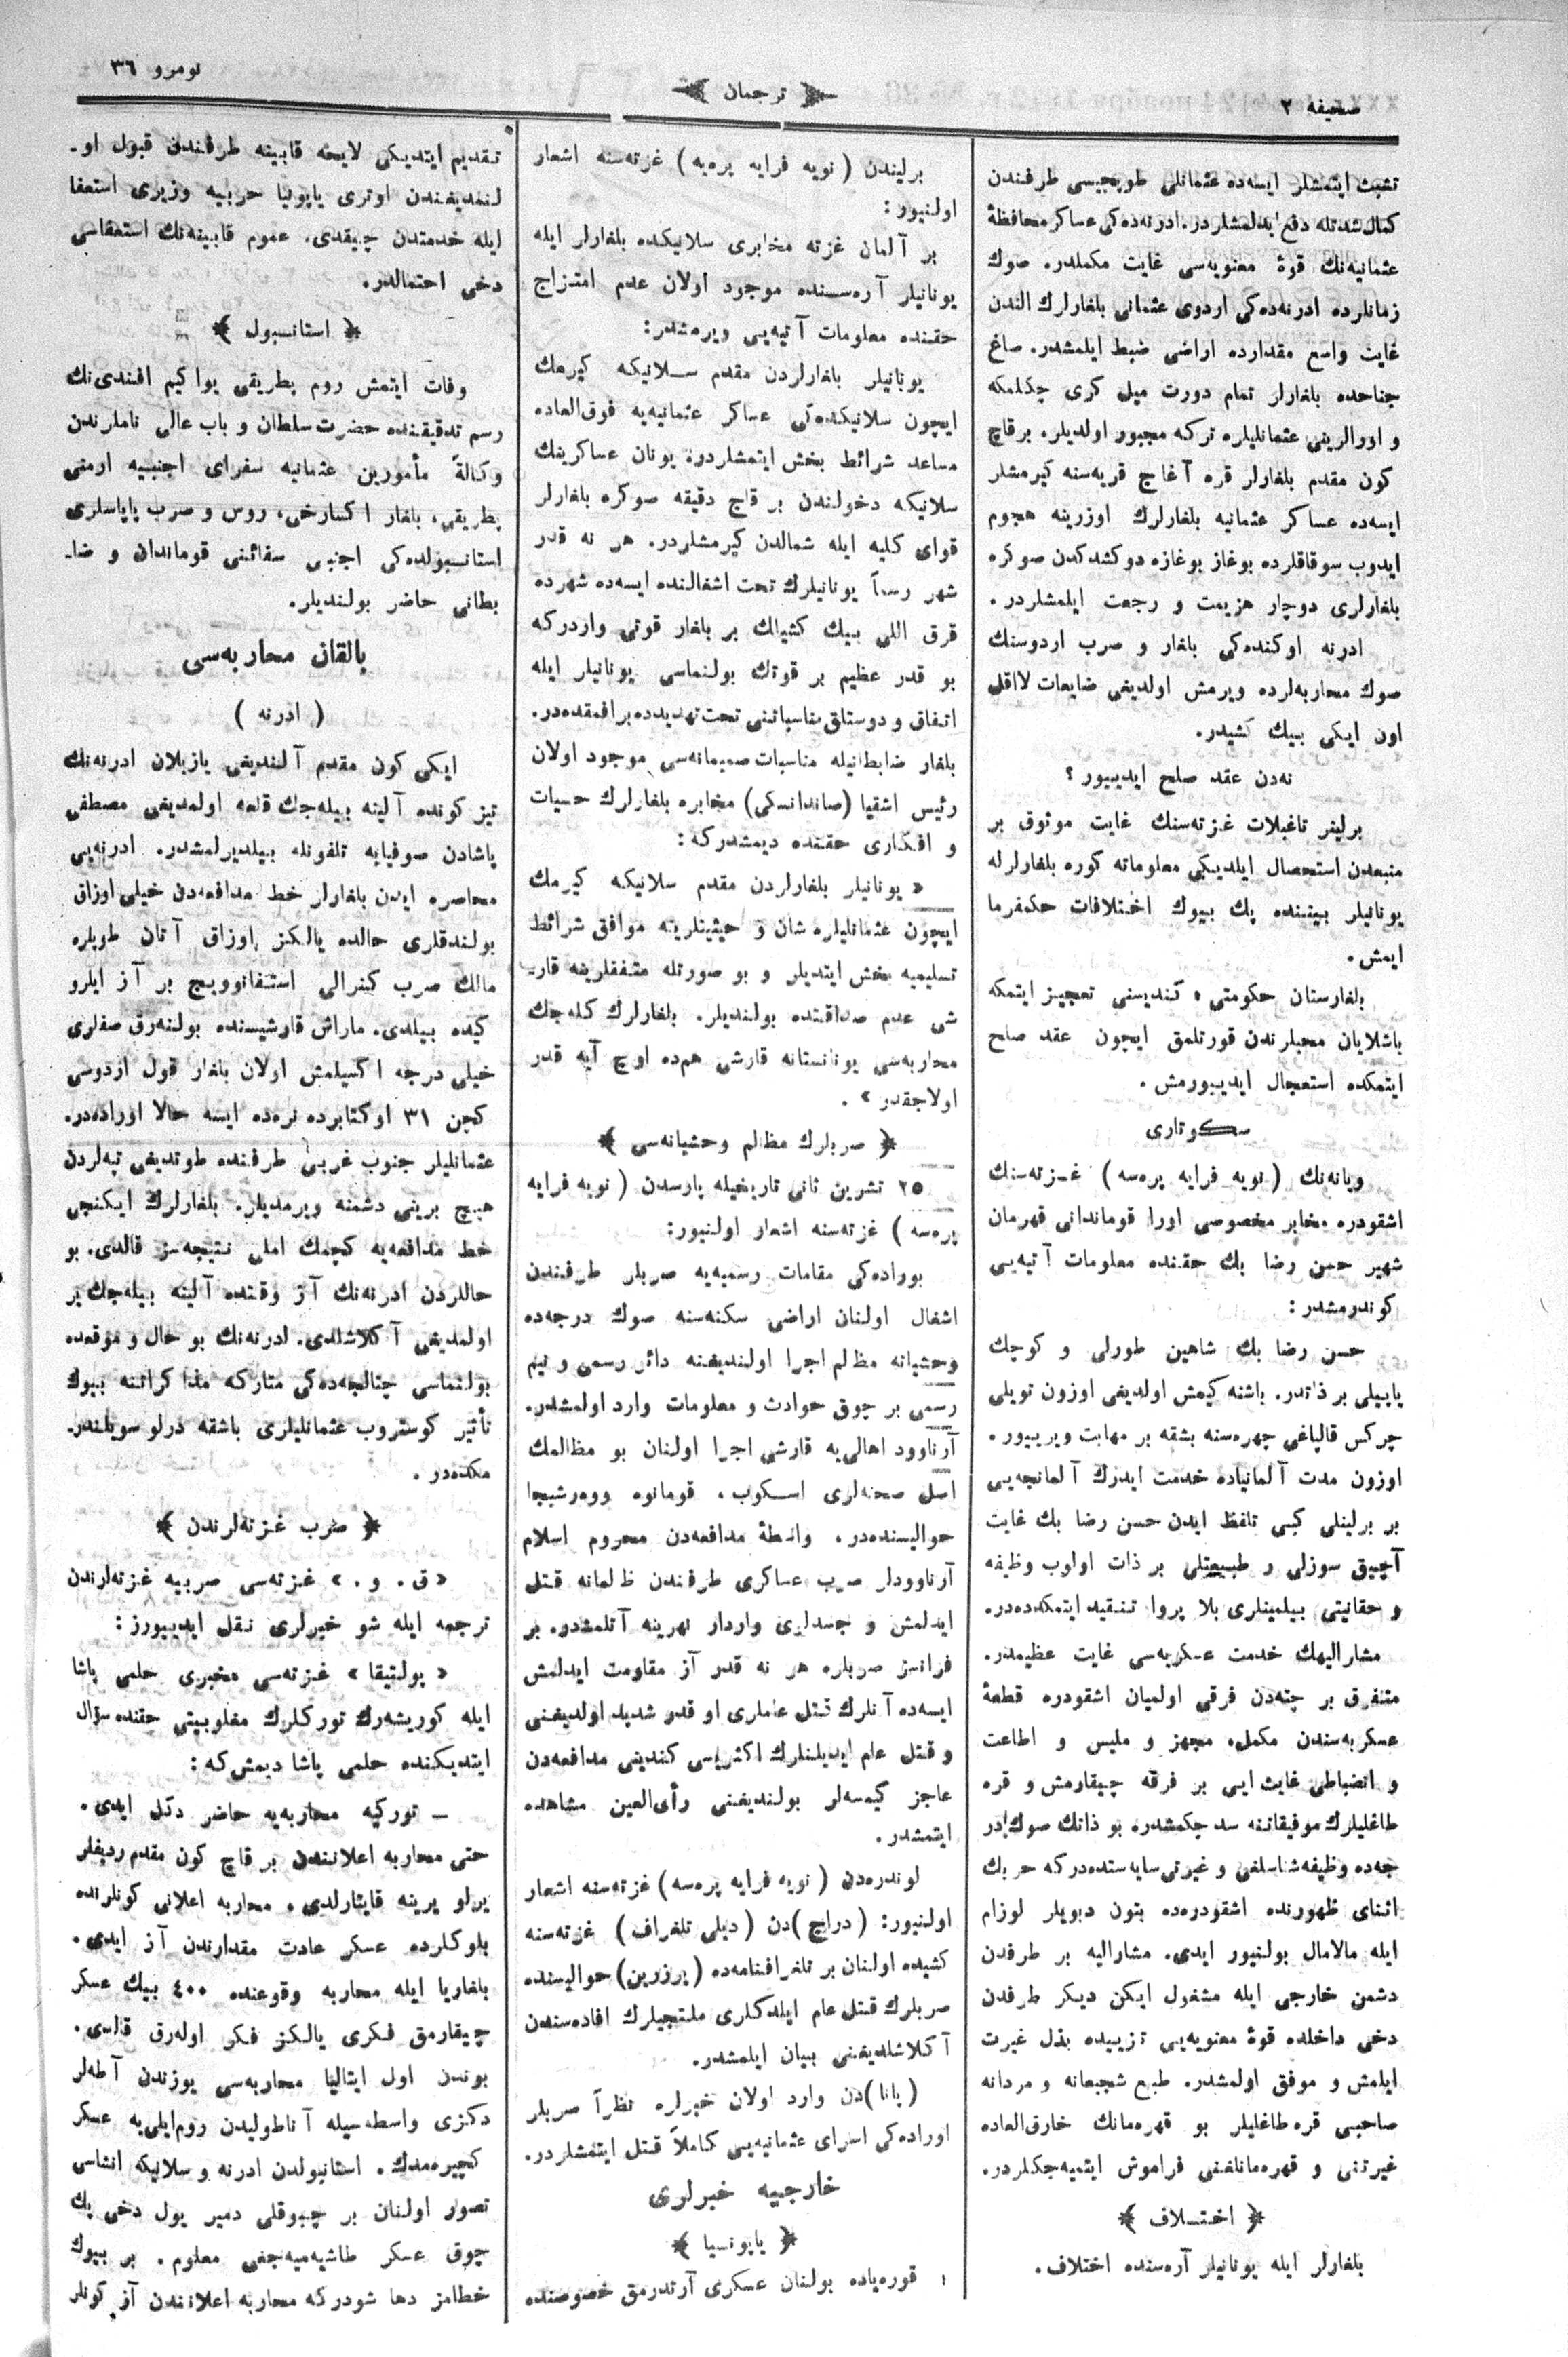 صحیفه ٢
ترجمان
نومرو ٣٦
تشبث ایتمشلر ایسه‌ده عثمانلی طوپجیسی طرفندن
کمال شدتله دفع ایدلمشلردر. ادرنه‌ده‌کی عساکر محافظهٔ
عثمانیه‌نك قوهٔ معنویه‌سی غایت مکملدر. صوك
زمانلرده ادرنه‌ده‌کی اردوی عثمانی بلغارلرك الندن
غایت واسع مقدارده اراضی ضبط ایلمشدر. صاغ
جناحده بلغارلر تمام دورت میل کری چکلمکه
و اورالرینی عثمانلیلره ترکه مجبور اولدیلر. برقاچ
کون مقدم بلغارلر قره آغاج قریه‌سنه کیرمشلر
ایسه‌ده عساکر عثمانیه بلغارلرك اوزرینه هجوم
ایدوب سوقاقلرده بوغاز بوغازه دوکشدکدن صوکره
بلغارلری دوچار هزیمت و رجعت ایلمشلردر.
ادرنه اوکنده‌کی بلغار و صرب اردوسنك
صوك محاربه‌لرده ویرمش اولدیغی ضایعات لااقل
اون ایکی بیك کشیدر.
نه‌دن عقد صلح ایدییور؟
برلینر تاغبلات غزته‌سنك غایت موثوق بر
منبعدن استحصال ایلدیکی معلوماته کوره بلغارلرله
یونانیلر بیننده پك بیوك اختلافات حکمفرما
ایمش.
بلغارستان حکومتی، کندیسنی تعجیز ایتمکه
باشلایان محبلرندن قورتلمق ایچون عقد صلح
ایتمکده استعجال ایدییورمش.
سکوتاری
ویانه‌نك (نویه فرایه پره‌سه) غزته‌سنك
اشقودره مخابر مخصوصی اورا قوماندانی قهرمان
شهیر حسن رضا بك حقنده معلومات آتیه‌یی
کوندرمشدر:
حسن رضا بك شاهین طورلی و کوچك
یاپیلی بر ذاتدر. باشنه کیمش اولدیغی اوزون تویلی
چرکس قالپاغی چهره‌سنه بشقه بر مهابت ویرییور.
اوزون مدت آلمانیاده خدمت ایدرك آلمانجه‌یی
بر برلینلی کبی تلفظ ایدن حسن رضا بك غایت
آچیق سوزلی و طبیعتلی بر ذات اولوب وظیفه
و حقانیتی بیلمینلری بلا پروا تنقید ایتمکده‌در.
مشارالیهك خدمت عسکریه‌سی غایت عظیمدر.
متفرق بر چته‌دن فرقی اولمیان اشقودره قطعهٔ
عسکریه‌سندن مکمل، مجهز و ملبس و اطاعت
و انضباطی غایت ایی بر فرقه چیقارمش و قره
طاغلیلرك موفیقاتنه سد چکمشدر. بو ذاتك صوك در
جه‌ده وظیفه‌شناسلغی و غیرتی سایه‌سنده‌درکه حربك
اثنای ظهورنده اشقودره‌ده بتون دپویلر لوزام
ایله مالامال بولنیور ایدی. مشارالیه بر طرفدن
دشمن خارجی ایله مشغول ایکن دیکر طرفدن
دخی داخلده قوهٔ معنویه‌یی تزییده بذل غیرت
ایلمش و موفق اولمشدر. طبع شجیعانه و مردانه
صاحبی قره‌طاغلیلر بو قهره‌مانك خارق‌العاده
غیرتنی و قهره‌مانلغنی فراموش ایتمیه‌جکلردر.
﴿ اختـلاف ﴾
بلغارلر ایله یونانیلر آره‌سنده اختلاف.
برلیندن (نویه فرایه پره‌یه) غزته‌سنه اشعار
اولنیور:
بر آلمان غزته مخابری سلانیکده بلغارلر ایله
یونانیلر آره‌سنده موجود اولان عدم امتزاج
حقنده معلومات آتیه‌یی ویرمشدر:
یونانیلر بلغارلردن مقدم سلانیکه کیرمك
ایچون سلانیکده‌کی عساکر عثمانیه‌یه فوق‌العاده
مساعد شرائط بخش ایتمشلردر. یونان عساکرینك
سلانیکه دخولندن بر قاچ دقیقه صوکره بلغارلر
قوای کلیه ایله شمالدن کیرمشلردر. هر نه قدر
شهر رسماً یونانیلرك تحت اشغالنده ایسه‌ده شهرده
قرق اللی بیك کشیلك بر بلغار قوتی واردرکه
بو قدر عظیم بر قوتك بولنماسی یونانیلر ایله
اتفاق و دوستلق مناسباتنی تحت تهدیدده براقمقده‌در.
بلغار ضابطانیله مناسبات صمیمانه‌سی موجود اولان
رئیس اشقیا (صاندانسکی) مخابره بلغارلرك حسیات
و افکاری حقنده دیمشدرکه:
« یونانیلر بلغارلردن مقدم سلانیکه کیرمك
ایچون عثمانلیلره شان و حیثیتلرینه موافق شرائط
تسلیمیه بخش ایتدیلر و بو صورتله متفقلرینه قار-
شی عدم صداقتده بولندیلر. بلغارلرك کله‌جك
محاربه‌سی یونانستانه قارشی هم‌ده اوچ آیه قدر
اولاجقدر ».
﴿ صربلرك مظالم وحشیانه‌سی ﴾
٢٥ تشرین ثانی تاریخیله پارسدن (نویه فرایه
پره‌سه) غزته‌سنه اشعار اولنیور:
بوراده‌کی مقامات رسمیه‌یه صربلر طرفندن
اشغال اولنان اراضی سکنه‌سنه صوك درجه‌ده
وحشیانه مظالم اجرا اولندیغنه دائر رسمی و نیم
رسمی بر چوق حوادث و معلومات وارد اولمشدر.
آرناوود اهالی‌یه قارشی اجرا اولنان بو مظالمك
اصل صحنه‌لری اسکوب، قومانوه
حوالیسنده‌در. واسطهٔ مدافعه‌دن محروم اسلام
آرناوودلر صرب عساکری طرفندن ظالمانه قتل
ایدلمش و جسدلری واردار نهرینه آتلمشدر. بر
فرانسز صربلره هر نه قدر آز مقاومت ایدلمش
ایسه‌ده آنلرك قتل عاملری او قدر شدید اولدیغنی
و قتل عام ایدیلنلرك اکثریسی کندینی مدافعه‌دن
عاجز کیمسه‌لر بولندیغنی رأی‌العین مشاهده
ایتمشدر.
لوندره‌دن (نویه فرایه پره‌سه) غزته‌سنه اشعار
اولنیور: (دراچ)دن (دیلی تلغراف) غزته‌سنه
کشیده اولنان بر تلغرافنامه‌ده (پرزرین) حوالیسنده
صربلرك قتل عام ایلدکلری ملتجیلرك افاده‌سندن
آکلاشلدیغنی بیان ایلمشدر.
(یانا)دن وارد اولان خبرلره نظراً صربلر
اوراده‌کی اسرای عثمانیه‌یی کاملاً قتل ایتمشلردر.
خارجیه خبرلری
﴿ یاپونیا ﴾
قوره‌یاده بولنان عسکری آرتدرمق خصوصنده
تقدیم ایتدیکی لایحه قابینه طرفندن قبول او-
لنمدیغندن اوتری یاپونیا حربیه وزیری استعفا
ایله خدمتدن چیقدی. عموم قابینه‌نك استعفاسی
دخی احتمالدر.
﴿ استانبول ﴾
وفات ایتمش روم بطریقی یواکیم افندی‌نك
رسم تدفیننده حضرت سلطان و باب عالی ناملرندن
وکالةً مأمورین عثمانیه سفرای اجنبیه ارمنی
بطریقی، بلغار اکسارخی، روس و صرب پاپاسلری
استانبولده‌کی اجنبی سفائنی قوماندان و ضا-
بطانی حاضر بولندیلر.
بالقان محاربه‌سی
(ادرنه)
ایکی کون مقدم آلندیغی یازیلان ادرنه‌نك
تیز کونده آلینه بیله‌جك قلعه اولمدیغی مصطفی
پاشادن صوفیایه تلفونله بیلدیرلمشدر. ادرنه‌یی
محاصره ایدن بلغارلر خط مدافعه‌دن خیلی اوزاق
بولندقلری حالده یالکز اوزاق آتان طوپلره
مالك صرب کنرالی استفانوویچ بر آز ایلرو
کیده بیلدی. ماراش قارشیسنده بولنه‌رق صفلری
خیلی درجه اکسیلمش اولان بلغار قول اردوسی
کچن ٣١ اوکتابرده نره‌ده ایسه حالا اوراده‌در.
عثمانلیلر جنوب غربی طرفنده طوتدیغی تپه‌لردن
هیچ برینی دشمنه ویرمدیلر. بلغارلرك ایکنجی
خط مدافعه‌یه کچمك املی نتیجه‌سز قالدی. بو
حاللردن ادرنه‌نك آز وقتده آلینه بیله‌جك یر
اولمدیغی آکلاشلدی. ادرنه‌نك بو حال و موقعده
بولنماسی چتالجه‌ده‌کی متارکه مذاکراتنه بیوك
تأثیر کوستروب عثمانلیلری باشقه درلو سویلندر-
مکده‌در.
﴿ صرب غزته‌لرندن ﴾
« ق. و. » غزته‌سی صربیه غزته‌لرندن
ترجمه ایله شو خبرلری نقل ایدییورز:
« پولتیقا » غزته‌سی مخبری حلمی پاشا
ایله کوریشه‌رك تورکلرك مغلوبیتی حقنده سؤال
ایتدیکنده حلمی پاشا دیمش‌که:
— تورکیه محاربه‌یه حاضر دکل ایدی.
حتی محاربه اعلانندن بر قاچ کون مقدم ردیفلر
یرلو یرینه قایتارلدی. محاربه اعلانی کونلرنده
بلوکلرده عسکر عادت مقدارندن آز ایدی.
بلغاریا ایله محاربه وقوعنده ٤٠٠ بیك عسکر
چیقارمق فکری یالکز فکر اوله‌رق قالدی.
بوندن اول ایتالیا محاربه‌سی یوزندن آطه‌لر
دکزی واسطه‌سیله آناطولیدن روم‌ایلی‌یه عسکر
کچیره‌مدك. استانبولدن ادرنه و سلانیکه انشاسی
تصور اولنان بر چبوقلی دمیر یول دخی پك
چوق عسکر طاشیه‌میه‌جغی معلوم. بر بیوك
خطامز دها شودرکه محاربه اعلانندن آز کونلر